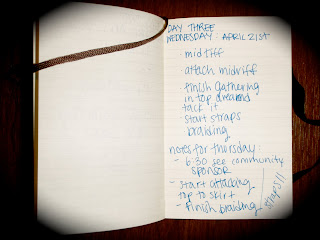 DAY THREE
WEDNESDAY: APRIL 21ST
midriff
· attach midriff
· finish gathering
in top dread
tack it
· start straps
braiding
notes for thursday:
- 6:30 see community
sponsor
- start attaching
top to skirt
- finish braiding
straps!!